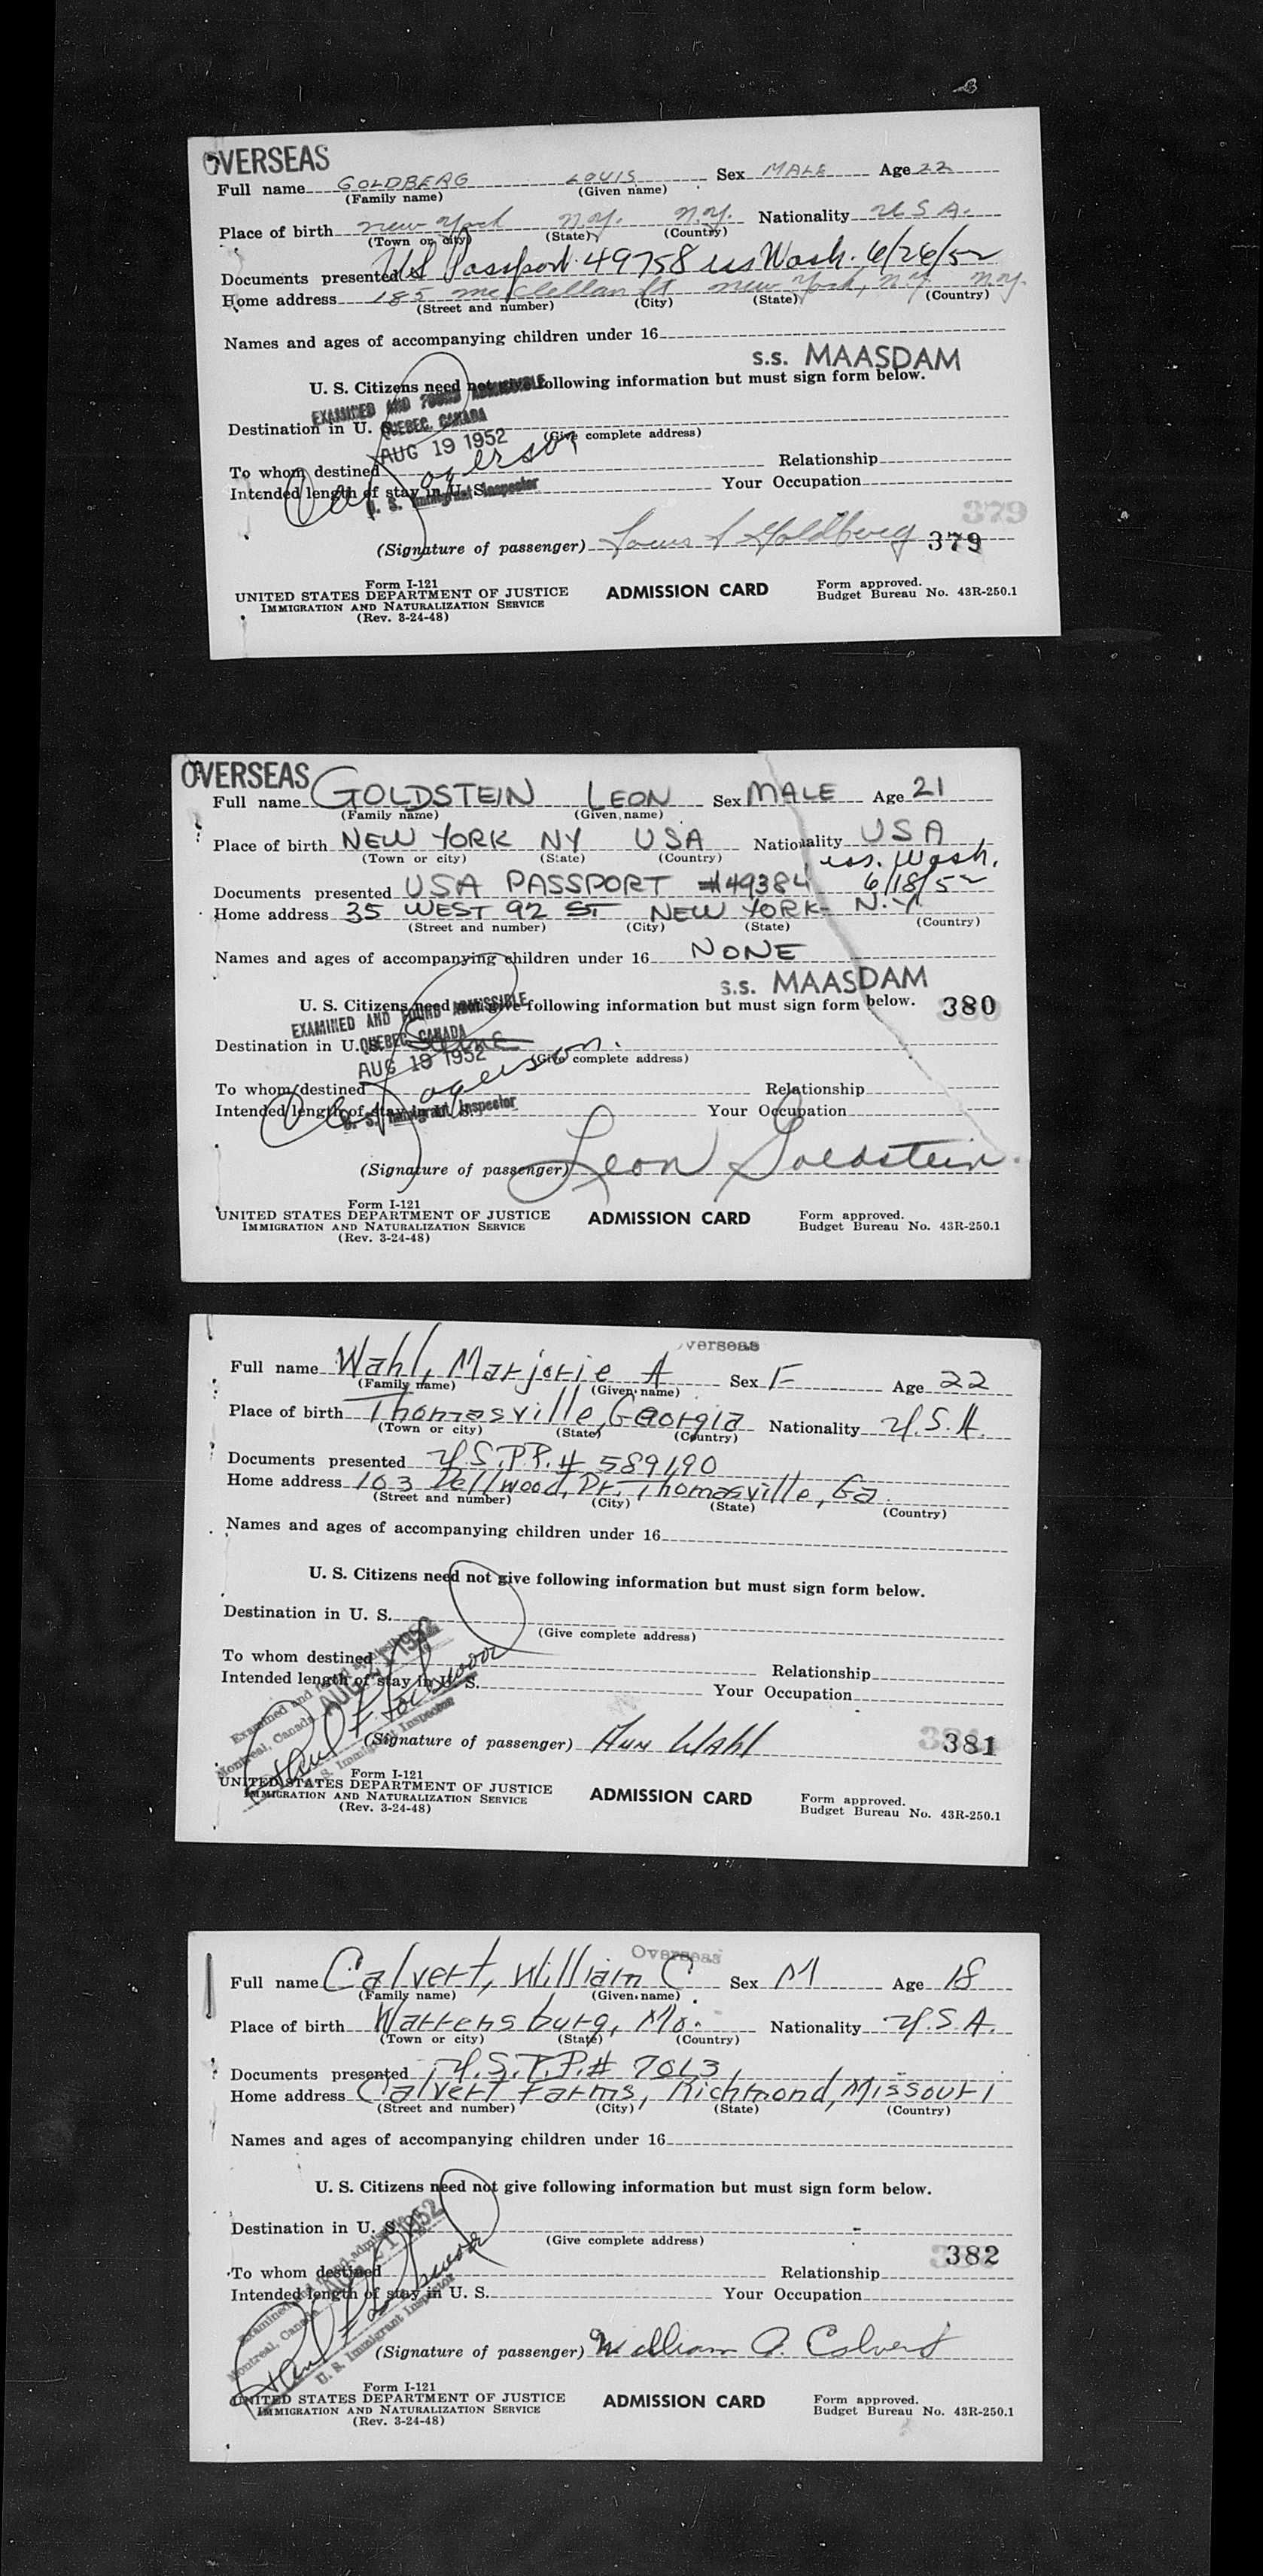 OVERSEAS
Full name GOLDBERG LOUIS Sex MALE Age 22
(Family name) (Given name)
Place of birth New York N.Y. N.Y. Nationality U S A.
(Town or city) (State) (Country)
Documents presented US Passport 49758 iss Wash. 6/26/52
Home address 185 McClellan St New York, N.Y. N.Y.
(Street and number) (City) (State) (Country)
Names and ages of accompanying children under 16
s.s. MAASDAM
U. S. Citizens need not give following information but must sign form below.
EXAMINED AND FOUND ADMISSIBLE
Destination in U. S.
QUEBEC, CANADA
(Give complete address)
AUG 19 1952
To whom destined Relationship
Intended length of stay in U. S. Your Occupation
U. S. Immigrant Inspector
379
(Signature of passenger) Louis S Goldberg 379
Form I-121
UNITED STATES DEPARTMENT OF JUSTICE ADMISSION CARD Form approved.
IMMIGRATION AND NATURALIZATION SERVICE Budget Bureau No. 43R-250.1
(Rev. 3-24-48)
OVERSEAS
Full name GOLDSTEIN LEON Sex MALE Age 21
(Family name) (Given name)
Place of birth NEW YORK NY USA Nationality USA
(Town or city) (State) (Country)
iss. Wash.
Documents presented USA PASSPORT #49384 6/18/52
Home address 35 WEST 92 ST NEW YORK N.Y.
(Street and number) (City) (State) (Country)
Names and ages of accompanying children under 16 NONE
s.s. MAASDAM
U. S. Citizens need not give following information but must sign form below. 380
EXAMINED AND FOUND ADMISSIBLE
Destination in U. S.
QUEBEC, CANADA
(Give complete address)
AUG 19 1952
To whom destined Relationship
Intended length of stay in U. S. Your Occupation
U. S. Immigrant Inspector
(Signature of passenger) Leon Goldstein
Form I-121
UNITED STATES DEPARTMENT OF JUSTICE ADMISSION CARD Form approved.
IMMIGRATION AND NATURALIZATION SERVICE Budget Bureau No. 43R-250.1
(Rev. 3-24-48)
Overseas
Full name Wahl, Marjorie A Sex F Age 22
(Family name) (Given name)
Place of birth Thomasville, Georgia Nationality U.S.A.
(Town or city) (State) (Country)
Documents presented U.S.P.P.# 589190
Home address 103 Dellwood, Dr. Thomasville, Ga.
(Street and number) (City) (State) (Country)
Names and ages of accompanying children under 16
U. S. Citizens need not give following information but must sign form below.
Destination in U. S.
(Give complete address)
To whom destined Relationship
Intended length of stay in U. S. Your Occupation
Examined and
Montreal, Canada AUG 21 1952
U. S. Immigrant Inspector
(Signature of passenger) Ann Wahl 381
Form I-121
UNITED STATES DEPARTMENT OF JUSTICE ADMISSION CARD Form approved.
IMMIGRATION AND NATURALIZATION SERVICE Budget Bureau No. 43R-250.1
(Rev. 3-24-48)
Overseas
Full name Calvert, William C Sex M Age 18
(Family name) (Given name)
Place of birth Warrensburg, Mo. Nationality U.S.A.
(Town or city) (State) (Country)
Documents presented U.S.P.P.# 7013
Home address Calvert Farms, Richmond, Missouri
(Street and number) (City) (State) (Country)
Names and ages of accompanying children under 16
U. S. Citizens need not give following information but must sign form below.
Destination in U. S.
(Give complete address)
382
To whom destined Relationship
Intended length of stay in U. S. Your Occupation
Examined and
Montreal, Canada AUG 21 1952
U. S. Immigrant Inspector
(Signature of passenger) William C. Calvert
Form I-121
UNITED STATES DEPARTMENT OF JUSTICE ADMISSION CARD Form approved.
IMMIGRATION AND NATURALIZATION SERVICE Budget Bureau No. 43R-250.1
(Rev. 3-24-48)